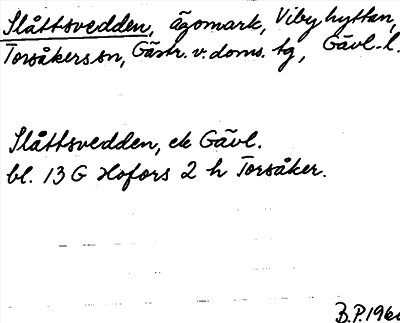 Slåttsvedden, ägomark, Vibyhyttan,
Torsåkers sn, Gästr. v. doms. tg, Gävl. l.
Slåttsvedden, ek Gävl.
bl. 13 G Hofors 2 h Torsåker.
B.P.196